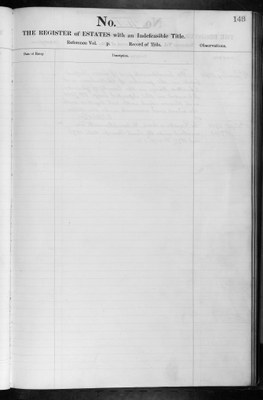 No.
148
THE REGISTER of ESTATES with an Indefeasible Title.
Reference Vol. p. Record of Title.
Observations.
Date of Entry.
Description.